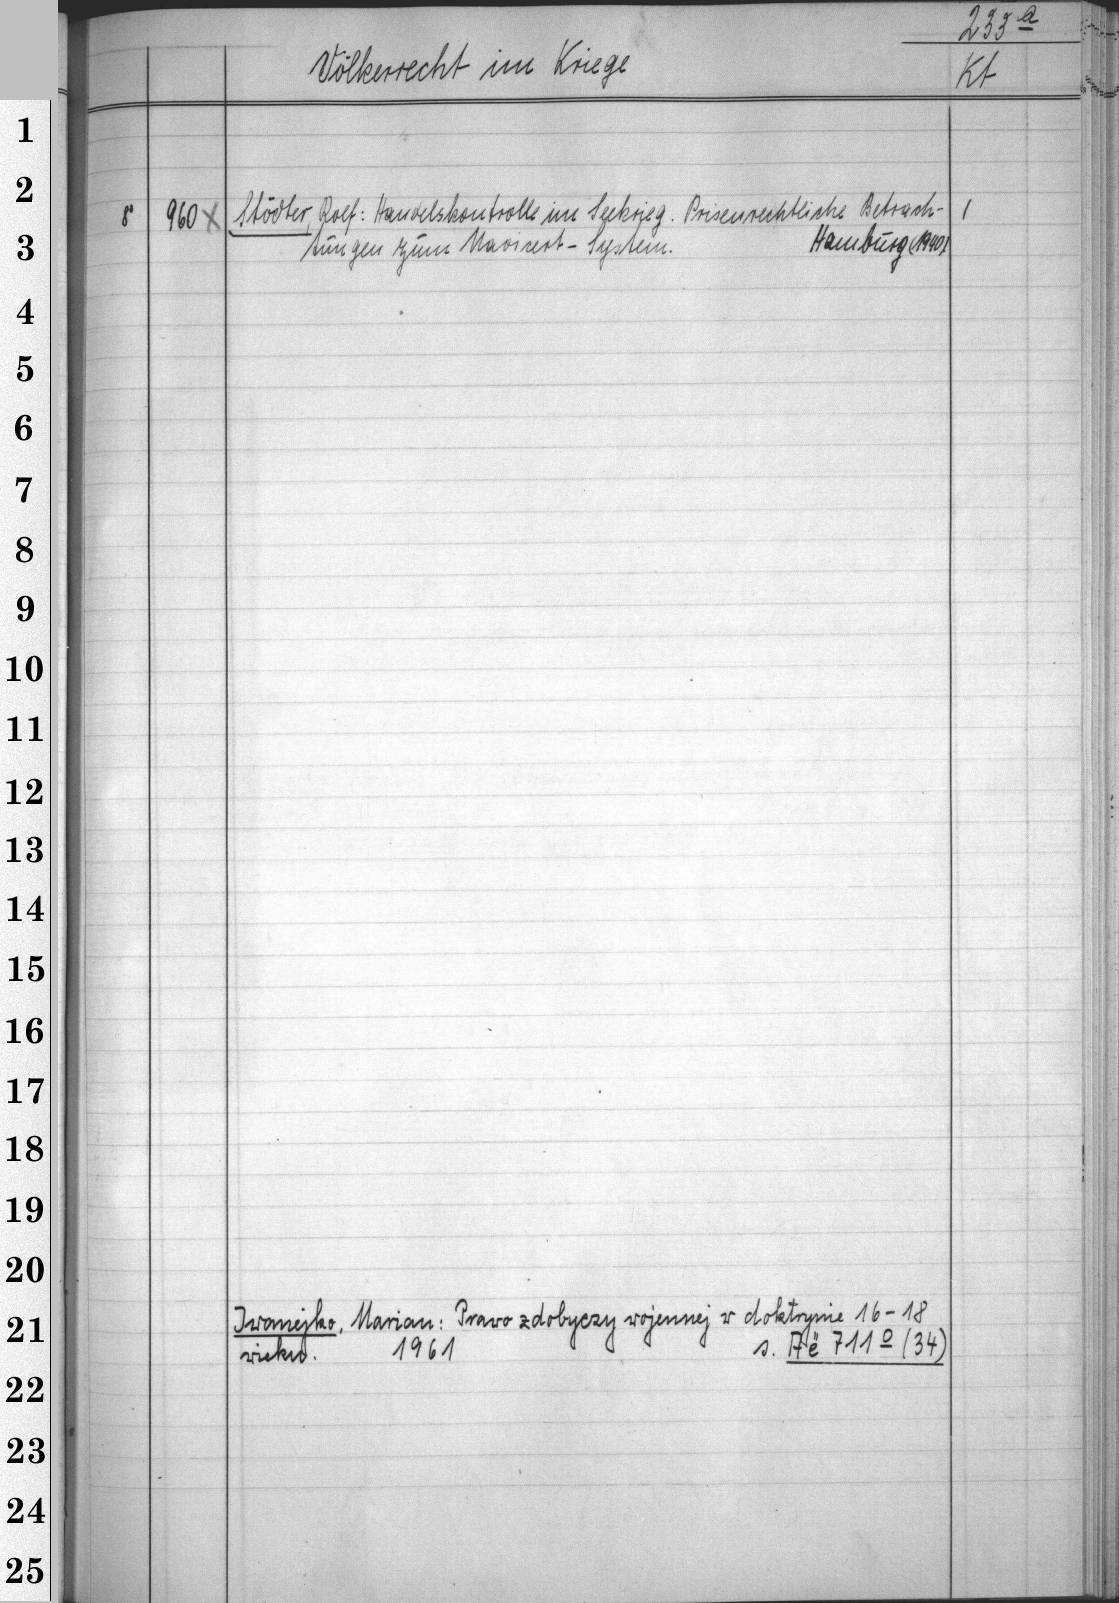 233 a
Völkerrecht im Kriege
Kt
1
2
8° 960 x Stödter, Rolf: Handelskontrolle im Seekrieg. Prisenrechtliche Betrach- 1
3
tungen zum Navicert-System. Hamburg (1940)
4
5
6
7
8
9
10
11
12
13
14
15
16
17
18
19
20
Iwanejko, Marian: Prawo zdobyczy wojennej w doktrynie 16-18
21
wieku. 1961 s. Aë 711 o (34)
22
23
24
25